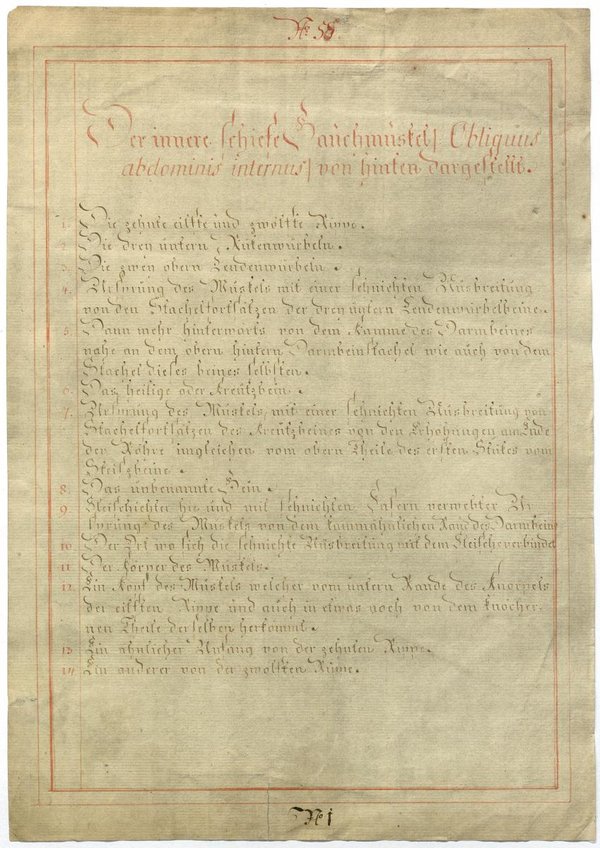 No 58.
Der innere schiefe Bauchmuskel/ Obliquus
abdominis internus/ von hinten dargestellt.
1. Die zehnte eilfte und zwölfte Rippe.
2. Die drey untern Rükenwürbeln.
3. Die zwey obern Lendenwürbeln.
4. Ursprung des Muskels mit einer sehnichten Ausbreitung
von den Stachelfortsätzen der drey untern Lendenwürbelbeine.
5. Dann mehr hinterwärts von dem Kamme des Darmbeines
nahe an dem obern hintern Darmbeinstachel wie auch von dem
Stachel dieses beines selbsten.
6. Das heilige oder Kreutzbein.
7. Ursprung des Muskels mit einer sehnichten Ausbreitung von
Stachelfortsätzen des Kreutzbeines von den Erhöhungen am Ende
der Röhre imgleichen vom obern Theile des ersten Stükes vom
Steiszbeine.
8. Das unbenannte Bein.
9. Fleischichter hie und mit sehnichten Fasern verwebter Ur
sprung des Muskels von dem kammähnlichen Rande des Darmbeins
10. Der Ort wo sich die sehnichte Ausbreitung mit dem Fleische verbindet
11. Der Körper des Muskels.
12. Ein Kopf des Muskels welcher vom untern Rande des Knorpels
der eilften Rippe und auch in etwas noch von dem knöcher
nen Theile derselben herkömmt.
13. Ein ähnlicher Anfang von der zehnten Rippe.
14. Ein anderer von der zwölften Rippe.
No 1